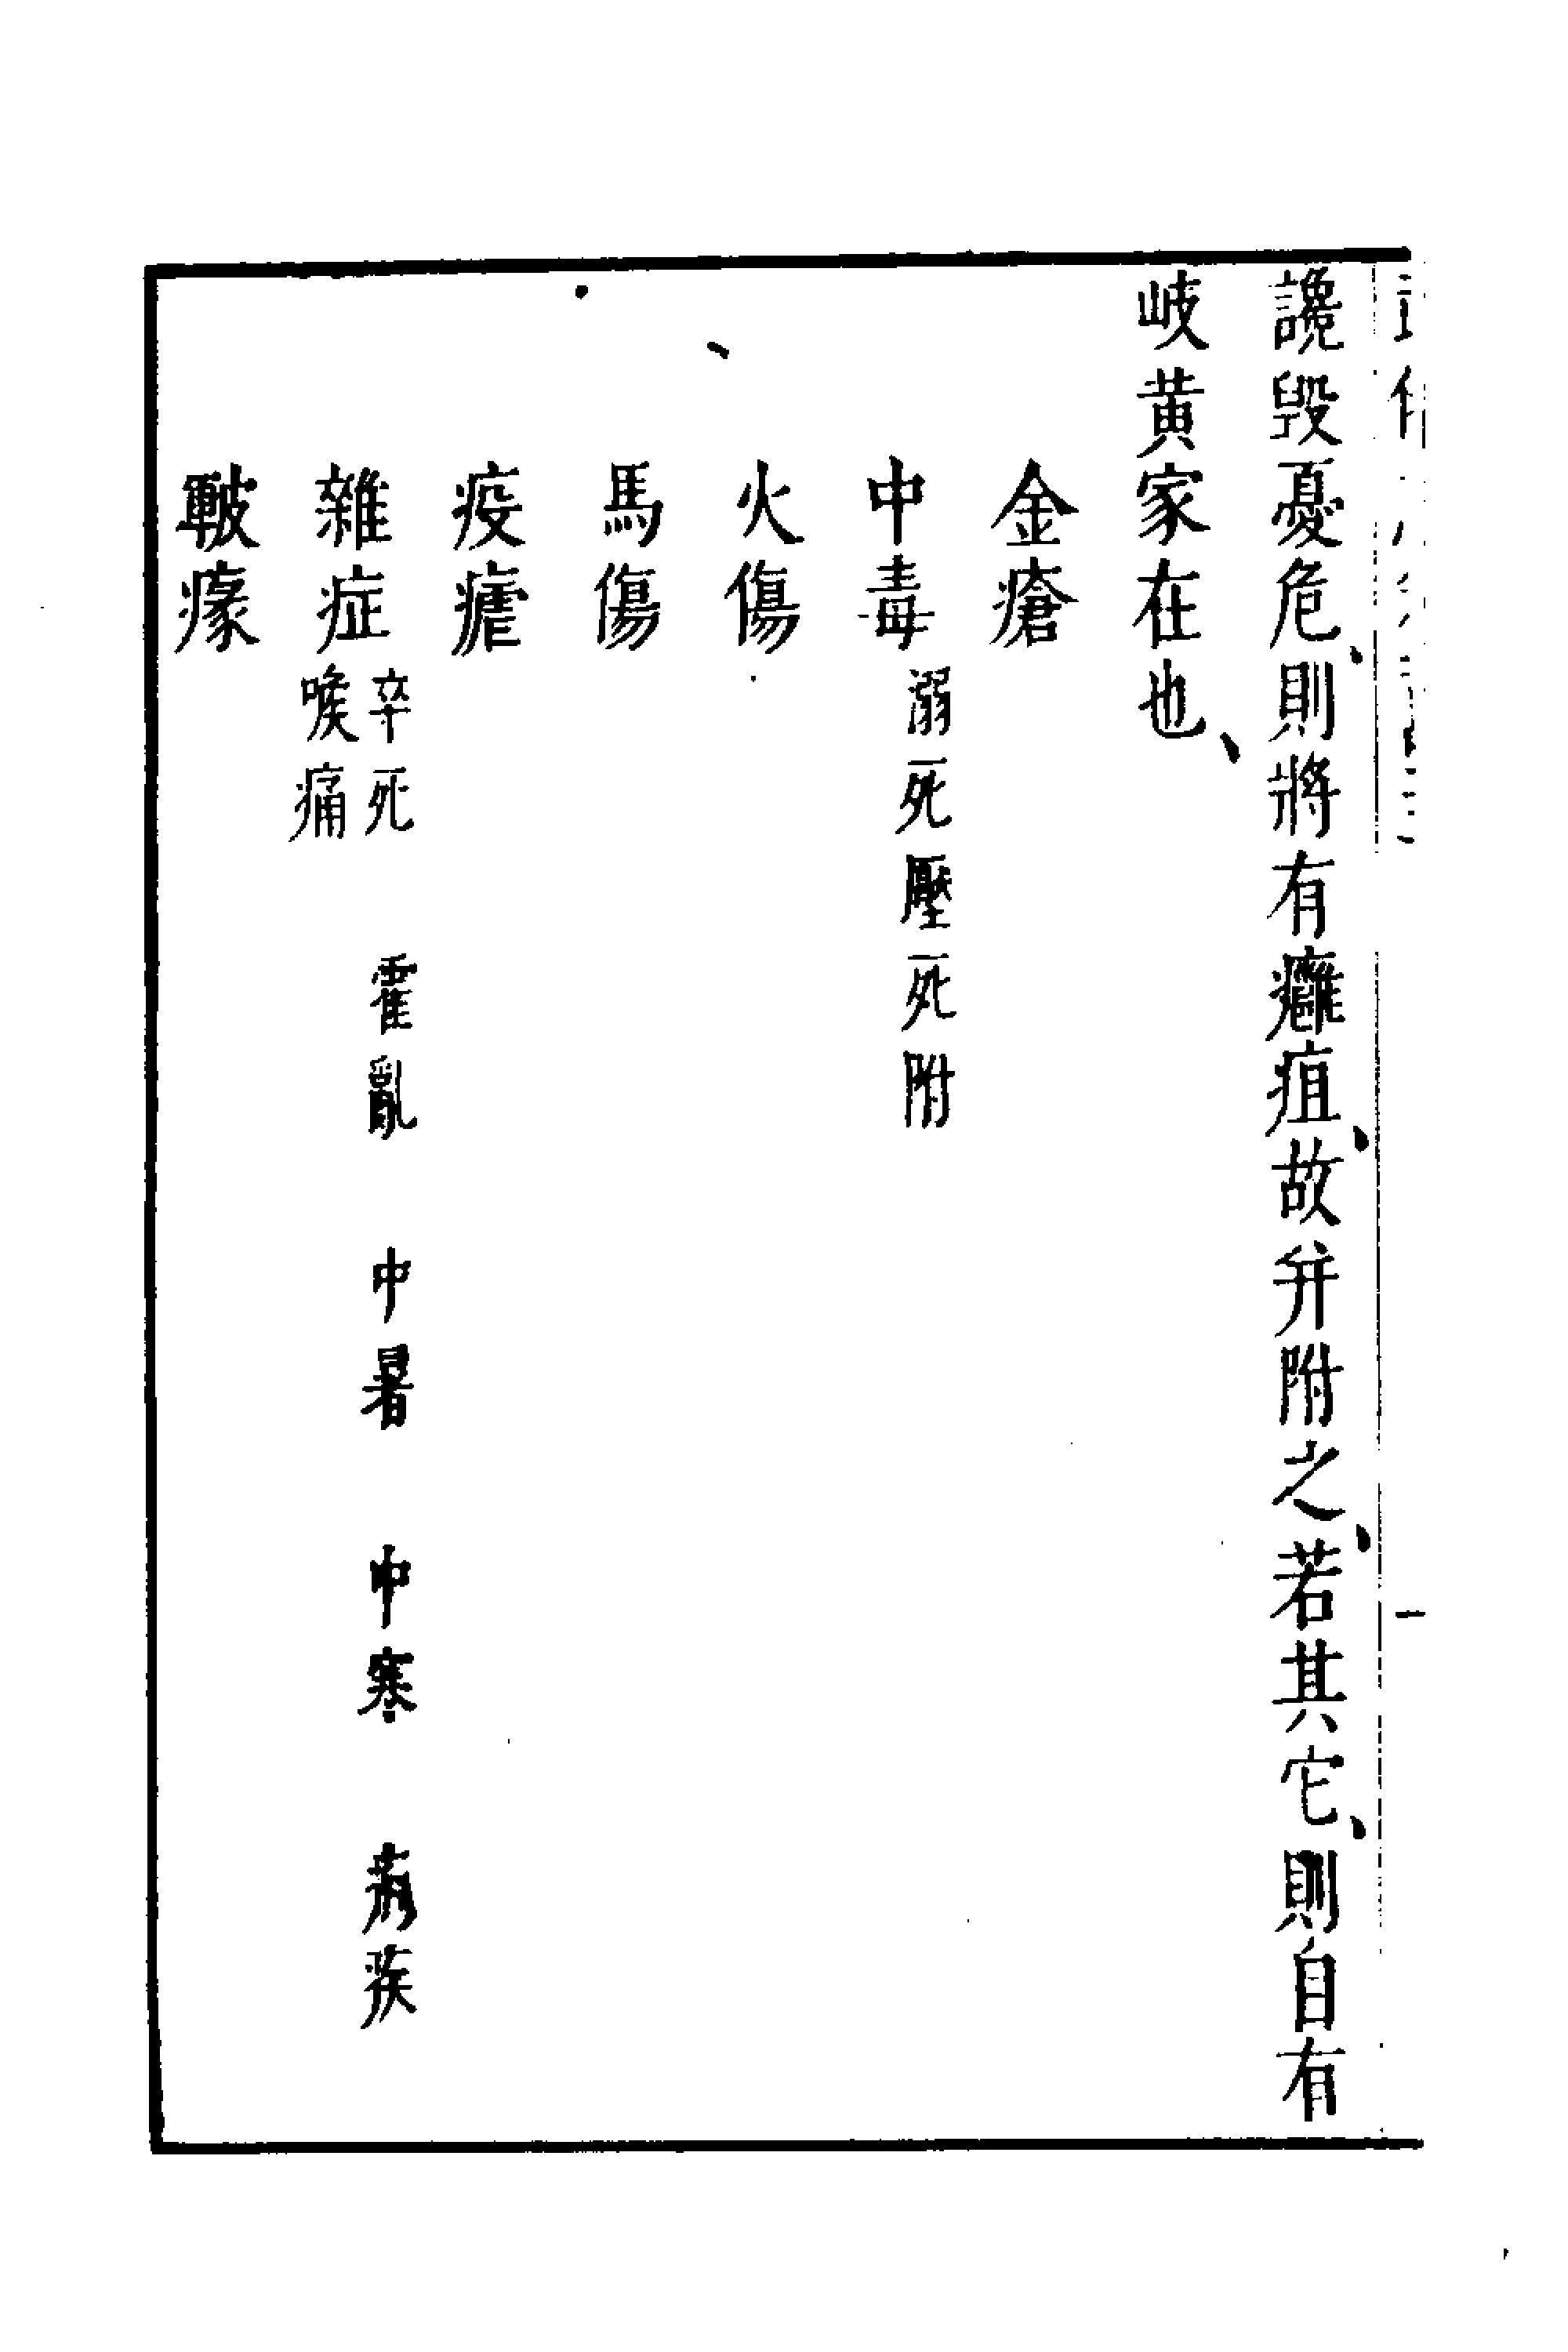 讒毀憂危、則將有癰疽、故并附之、若其它、則自有
岐黄家在也、
金瘡
中毒溺死壓死附
火傷
馬傷
疫瘧
雜症卒死 霍亂 中暑 中寒
喉痛
皸瘃